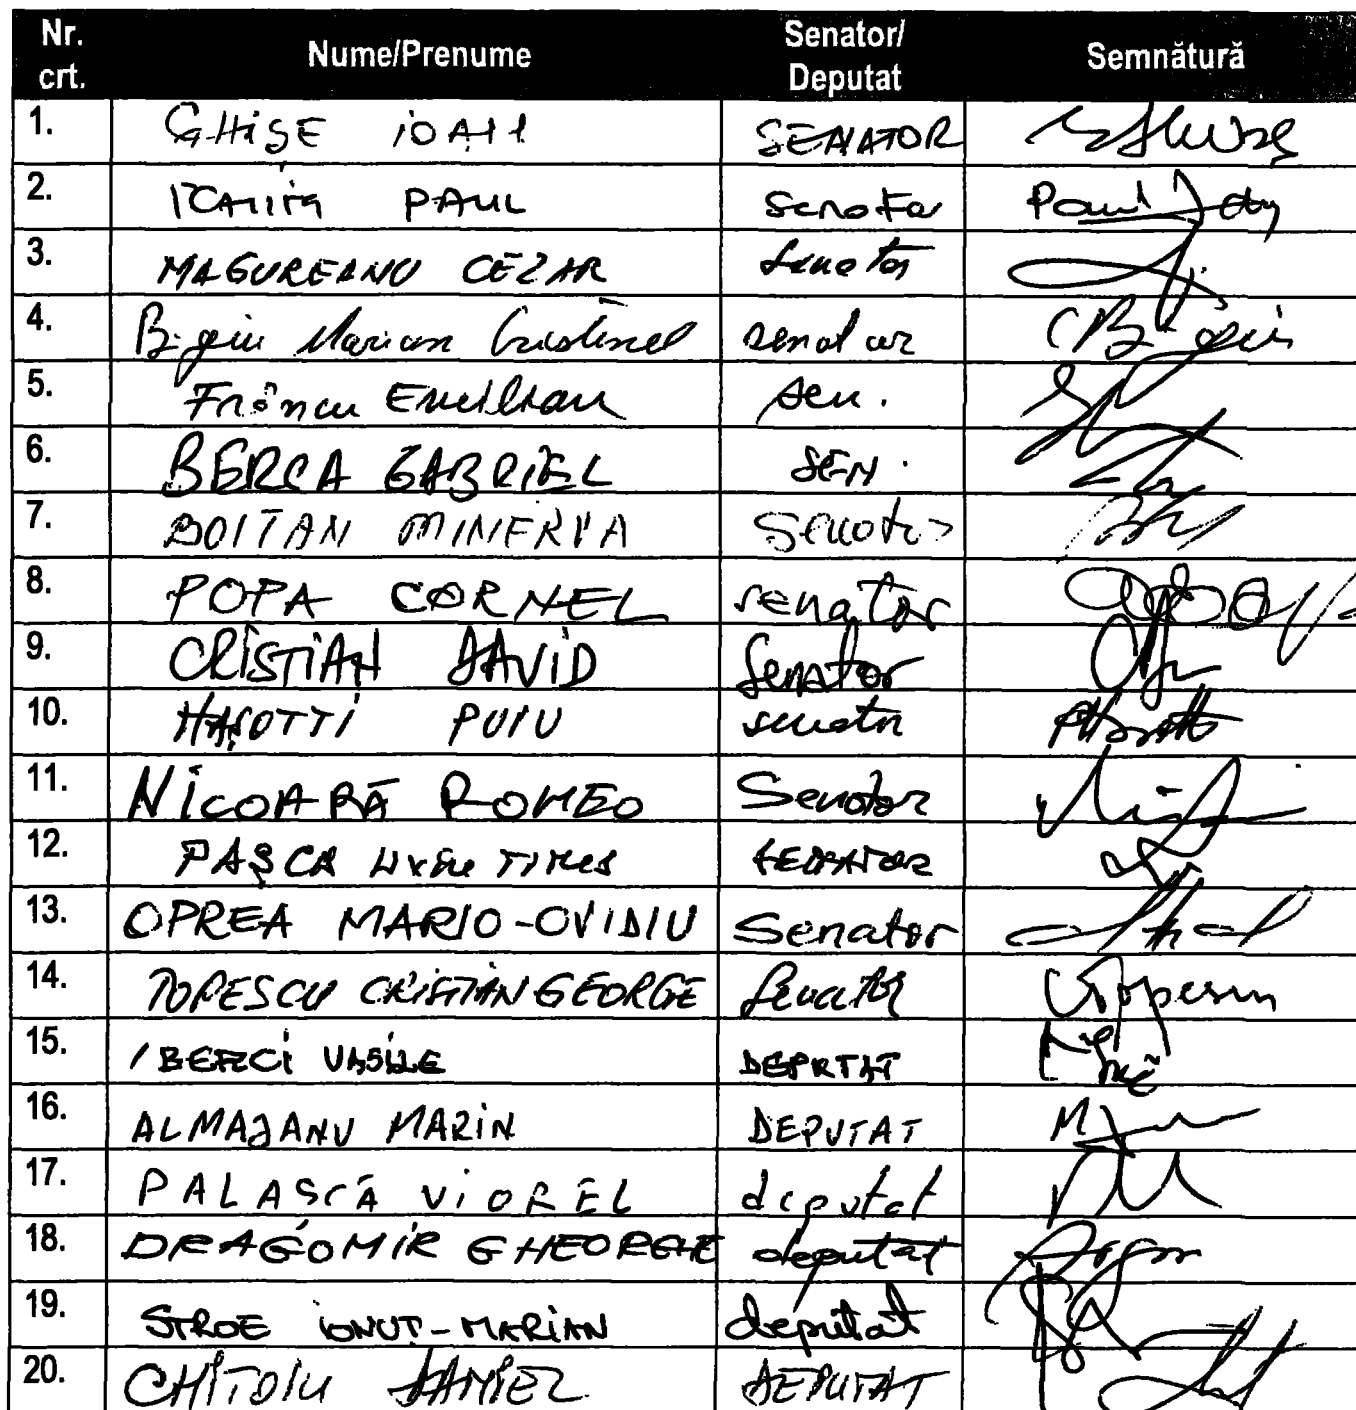 Nr. crt. Nume/Prenume Senator/ Deputat Semnătură
1. GHIȘE IOAN SENATOR
2. PAUL senator Paul
3. MAGUREANU CEZAR senator
4. Bigiu Marian Cristinel senator
5. Frâncu Emilian sen.
6. BERCA GABRIEL SEN.
7. BOITAN MINERVA Senator
8. POPA CORNEL senator
9. CRISTIAN DAVID Senator
10. HAȘOTTI PUIU senator
11. NICOARĂ ROMEO Senator
12. PAȘCA LIVIU TITUS SENATOR
13. OPREA MARIO-OVIDIU Senator
14. POPESCU CRISTIAN GEORGE Senator Popescu
15. BERCI VASILE DEPUTAT
16. ALMAJANU MARIN DEPUTAT
17. PALAȘCĂ VIOREL deputat
18. DRAGOMIR GHEORGHE deputat
19. STROE IONUȚ-MARIAN deputat
20. CHIȚOIU DANIEL DEPUTAT